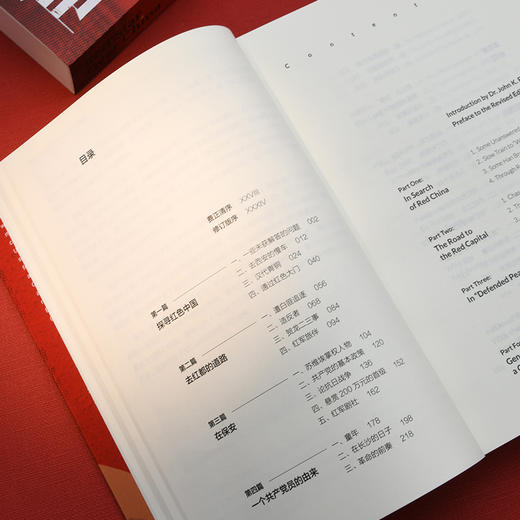 目录
费正清序 XXVIII
修订版序 XXXIV
第一篇
探寻红色中国
一、一些未获解答的问题 002
二、去西安的慢车 012
三、汉代青铜 024
四、通过红色大门 040
第二篇
去红都的道路
一、遭白匪追逐 056
二、造反者 068
三、贺龙二三事 084
四、红军旅伴 094
第三篇
在保安
一、苏维埃掌权人物 104
二、共产党的基本政策 120
三、论抗日战争 136
四、悬赏200万元的首级 152
五、红军剧社 162
第四篇
一个共产党员的由来
一、童年 178
二、在长沙的日子 198
三、革命的前奏 218
Content
Introduction by Dr. John K.
Preface to the Revised Edi
Part One:
In Search
of Red China
1. Some Unanswered
2. Slow Train to "W
3. Some Han Bro
4. Through R
Part Two:
The Road to
the Red Capital
1. Chas
2. The
3.
4.
Part Three:
In "Defended Pea
Part Fo
Gen
a C